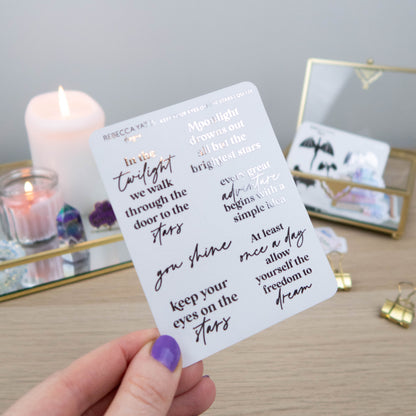 REBECCA YAT
KEEP YOUR EYES ON THE STARS
In the
twilight
we walk
through the
door to the
stars
you shine
keep your
eyes on the
stars
Moonlight
drowns out
all but the
brightest stars
every great
adventure
begins with a
simple idea
At least
once a day
allow
yourself the
freedom to
dream